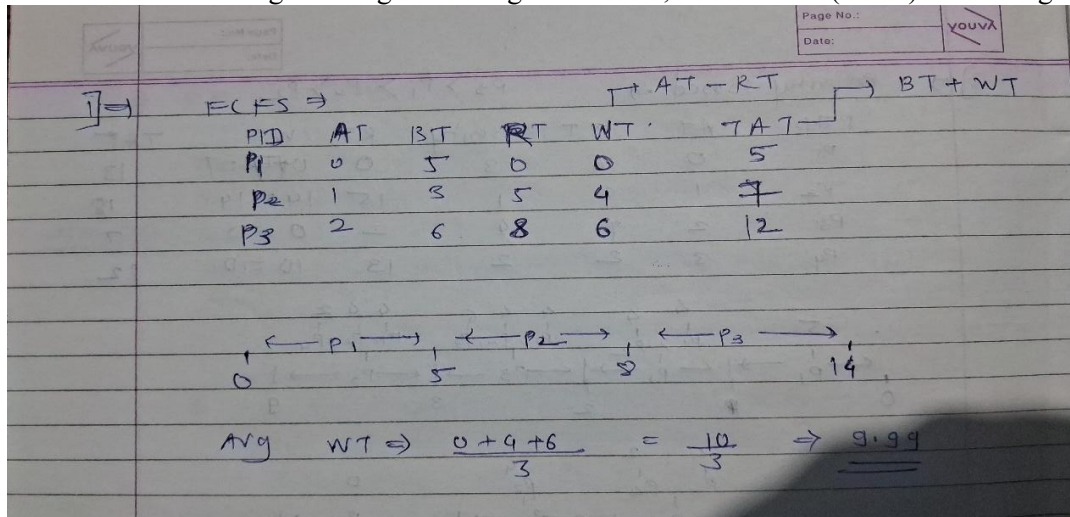 Page No.:
Date:
YOUVA
1] ⇒ FCFS ⇒ → AT - RT → BT + WT
PID AT BT RT WT TAT
P1 0 5 0 0 5
P2 1 3 5 4 7
P3 2 6 8 6 12
← P1 → ← P2 → ← P3 →
0 5 8 14
Avg WT ⇒ 0+4+6/3 = 10/3 ⇒ 9.99